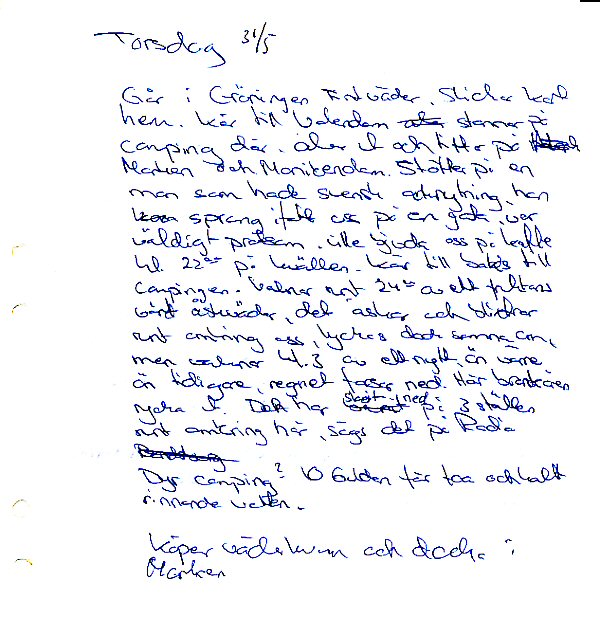 Torsdag 31/5
Går i Gröningen Fint väder. Sticker
hem. kör till Volendam stannar på
camping där. åker ut och tittar på
Marken och Monikendam. Stötte på en
man som hade svensk han
sprang ifatt oss på en gata, var
väldigt pratsam. ville bjuda oss på kaffe
kl. 22ºº på kvällen. kör till baks till
campingen. Vaknar runt 24ºº av ett
vårt åskväder, det åskar och blixtrar
runt omkring oss, lyckas dock somna om,
men vaknar kl. 3 av ett nytt, än värre
än tidigare, regnet forsar ned. Hör brandkåren
rycka ut. Det har slagit ned på 3 ställen
runt omkring här, sägs det på Radio
Dyr camping? 10 Gulden för toa och kallt
rinnande vatten.
Köper och dock. i
Marken